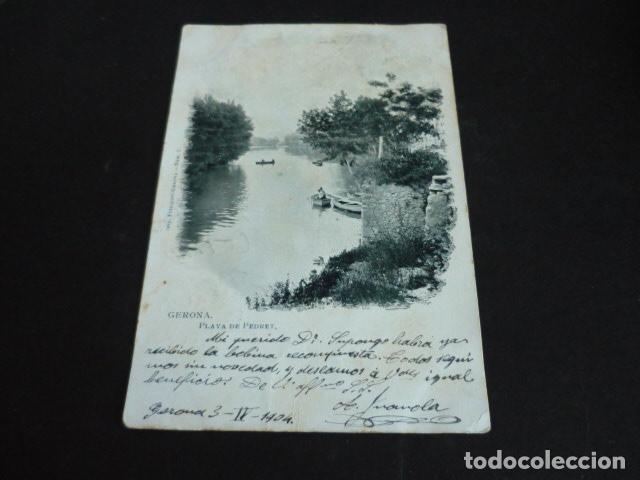 GERONA.
PLAYA DE PEDRET.
Mi querido Dr. Supongo habra ya
recibido la bobina recompuesta. Todos segui
mos sin novedad, y deseamos à Vdes igual
beneficio. De V. affmo S.S.
Gerona 3-IV-1904.
todocoleccion.net